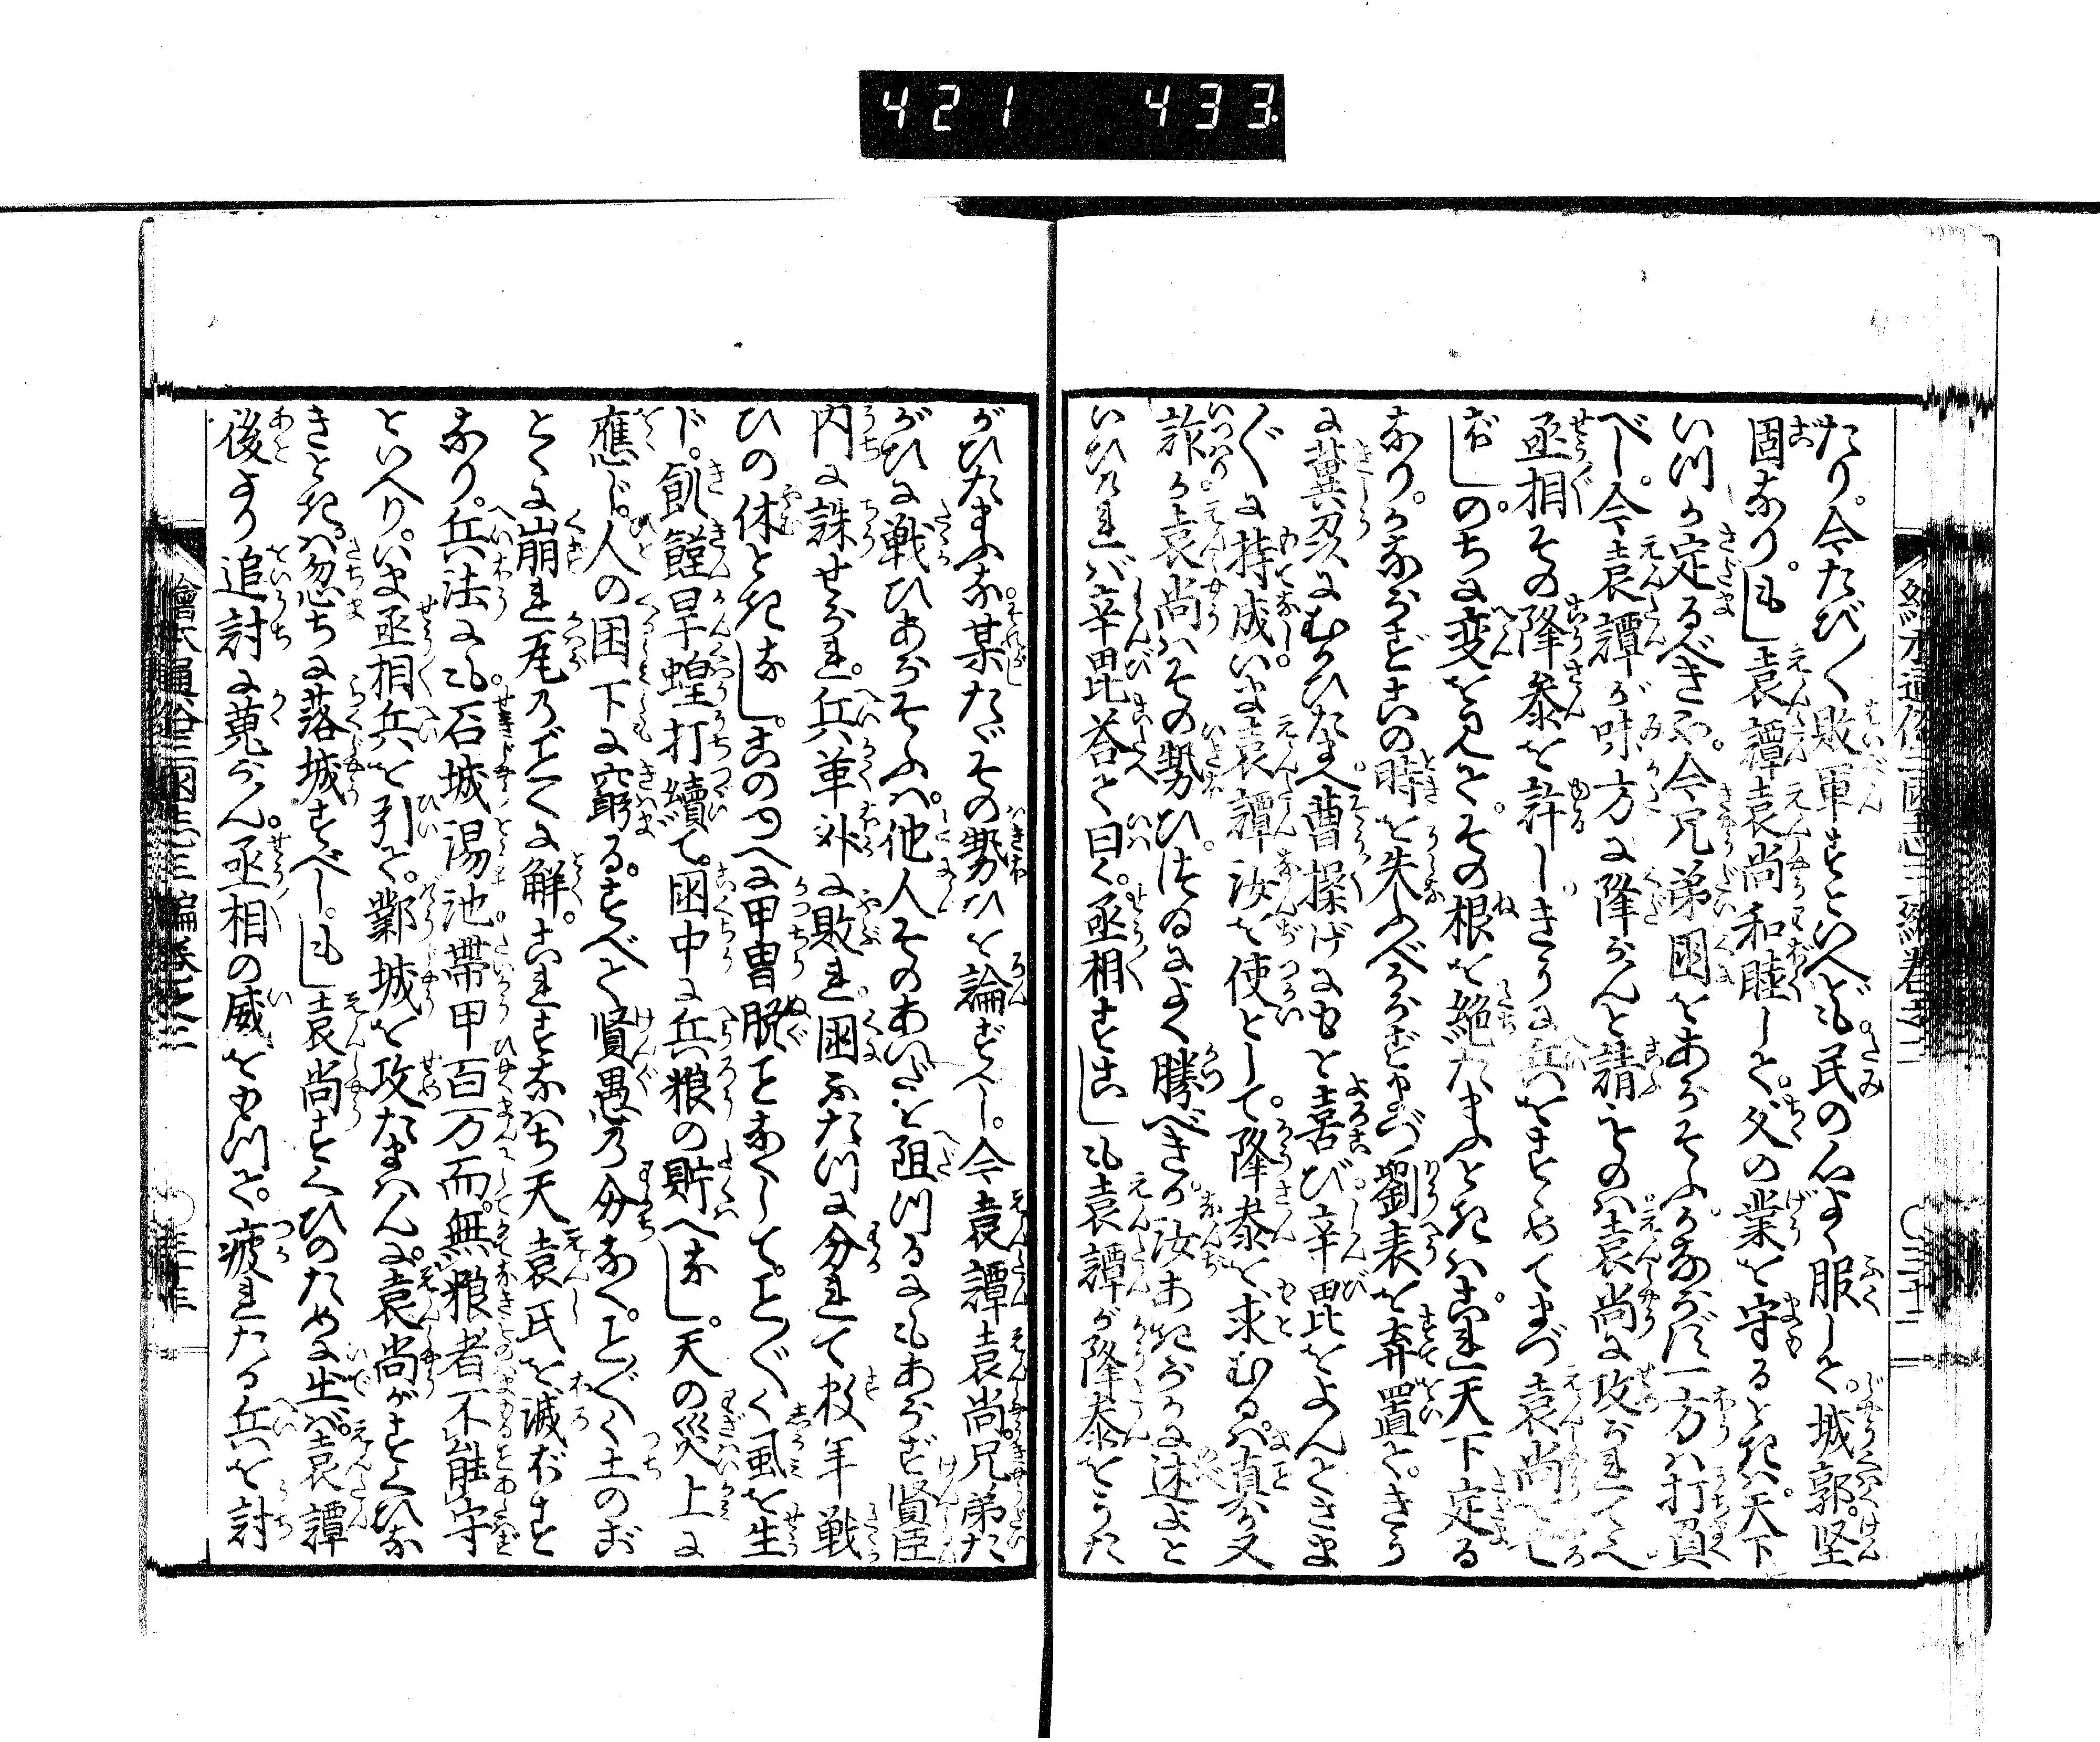 421 433
たり。今たび〳〵敗軍すといへども。民の心よく服して。城郭。堅
固なり。もし袁譚袁尚和睦して。父の業を守るときは。天下
いつか定るべきや。今兄弟国をあらそふ。かならず一方は打負
べし。今袁譚が味方に降らんと請ものは。袁尚に攻られてへ
丞相その降参を許し。きうに兵をすゝめてまづ袁尚を亡
ぼし。のちに変を見て。その根を絶たまふときは。これ天下定る
なり。かならずこの時を失ふべからずまづ劉表を弃置て。きう
に冀州にむかひたまへ。曹操げにもと喜び。辛毘をよんでさま
〴〵に持成。いま袁譚汝を使として。降参を求むるは。真か又
詐か。袁尚はその勢ひ。つゐによく勝べきか。汝あきらかに述よと
いひければ辛毘答て曰く。丞相すこしも袁譚が降参をうた
がひたまふな。某たゞその勢ひを論ずべし。今袁譚袁尚。兄弟た
がひに戦ひあらそふは。他人そのあいだを阻つるにもあらず賢臣
内に誅せられ。兵革外に敗れ。国ふたつに分れて数年戦
ひの休ときなし。このゆへに甲冑脱ことなくして。こと〴〵く虱を生
ず。飢饉旱蝗打續て。国中に兵粮の貯へなし。天の災上に
應じ。人の困下に窮る。すべて賢愚の分なく。こと〴〵く土のお
とくに崩れ瓦のごとくに解。これすなはち天袁氏を滅ぼす
なり。兵法にも。石城湯池。帯甲百万而。無粮者不能守
といへり。いま丞相兵を引て。鄴城を攻たまはんに。袁尚がすくひな
きときは。忽ちに落城すべし。もし袁尚すくひのために出ば。袁譚
後より追討に蒐らん。丞相の威をもつて。疲れたる兵を討
繪本通俗三国志三編巻之二 〇三十二
繪本通俗三国志三編巻之二 〇三十三